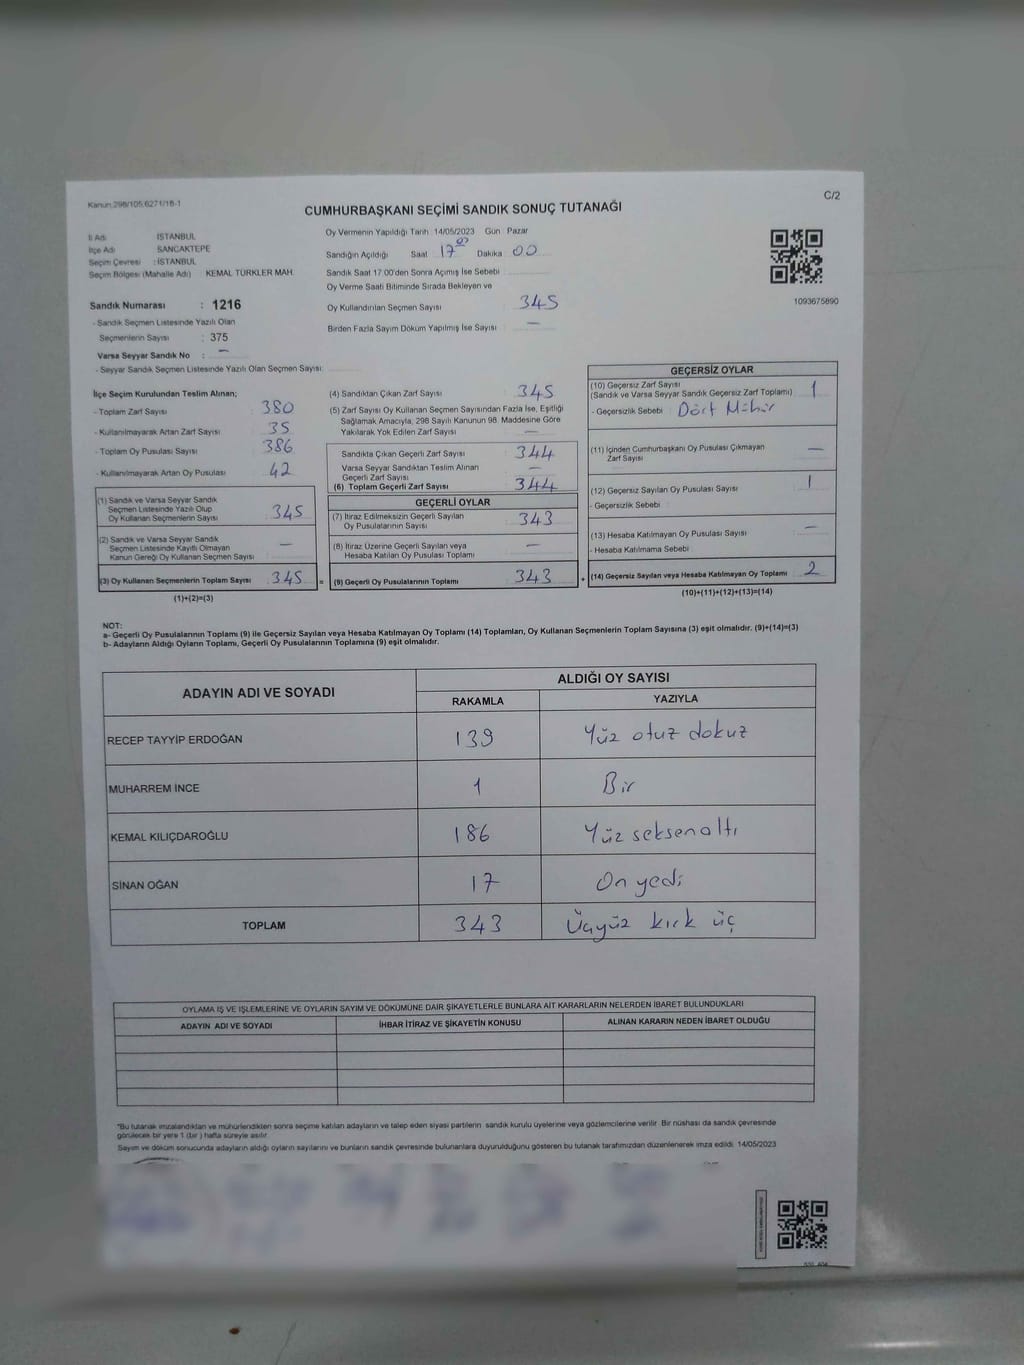 Kanun:298/105,6271/18-1
C/2
CUMHURBAŞKANI SEÇİMİ SANDIK SONUÇ TUTANAĞI
İl Adı : İSTANBUL
İlçe Adı : SANCAKTEPE
Seçim Çevresi : İSTANBUL
Seçim Bölgesi (Mahalle Adı) KEMAL TÜRKLER MAH.
Sandık Numarası : 1216
- Sandık Seçmen Listesinde Yazılı Olan
Seçmenlerin Sayısı : 375
Varsa Seyyar Sandık No : —
- Seyyar Sandık Seçmen Listesinde Yazılı Olan Seçmen Sayısı:
Oy Vermenin Yapıldığı Tarih 14/05/2023 Gün Pazar
Sandığın Açıldığı Saat 17 Dakika 00
Sandık Saat 17.00'den Sonra Açımış İse Sebebi
Oy Verme Saati Bitiminde Sırada Bekleyen ve
Oy Kullandırılan Seçmen Sayısı 345
Birden Fazla Sayım Döküm Yapılmış İse Sayısı —
1093675890
İlçe Seçim Kurulundan Teslim Alınan;
- Toplam Zarf Sayısı : 380
- Kullanılmayarak Artan Zarf Sayısı : 35
- Toplam Oy Pusulası Sayısı : 386
- Kullanılmayarak Artan Oy Pusulası : 42
(1) Sandık ve Varsa Seyyar Sandık
Seçmen Listesinde Yazılı Olup
Oy Kullanan Seçmenlerin Sayısı : 345
(2) Sandık ve Varsa Seyyar Sandık
Seçmen Listesinde Kayıtlı Olmayan
Kanun Gereği Oy Kullanan Seçmen Sayısı : —
(3) Oy Kullanan Seçmenlerin Toplam Sayısı : 345 =
(1)+(2)=(3)
(4) Sandıktan Çıkan Zarf Sayısı : 345
(5) Zarf Sayısı Oy Kullanan Seçmen Sayısından Fazla İse, Eşitliği
Sağlamak Amacıyla, 298 Sayılı Kanunun 98. Maddesine Göre
Yakılarak Yok Edilen Zarf Sayısı : —
Sandıkta Çıkan Geçerli Zarf Sayısı : 344
Varsa Seyyar Sandıktan Teslim Alınan
Geçerli Zarf Sayısı : —
(6) Toplam Geçerli Zarf Sayısı : 344
GEÇERLİ OYLAR
(7) İtiraz Edilmeksizin Geçerli Sayılan
Oy Pusulalarının Sayısı : 343
(8) İtiraz Üzerine Geçerli Sayılan veya
Hesaba Katılan Oy Pusulası Toplamı : —
(9) Geçerli Oy Pusulalarının Toplamı : 343 +
GEÇERSİZ OYLAR
(10) Geçersiz Zarf Sayısı
(Sandık ve Varsa Seyyar Sandık Geçersiz Zarf Toplamı) : 1
- Geçersizlik Sebebi : Dört Mühür
(11) İçinden Cumhurbaşkanı Oy Pusulası Çıkmayan
Zarf Sayısı : —
(12) Geçersiz Sayılan Oy Pusulası Sayısı : 1
- Geçersizlik Sebebi :
(13) Hesaba Katılmayan Oy Pusulası Sayısı : —
- Hesaba Katılmama Sebebi :
(14) Geçersiz Sayılan veya Hesaba Katılmayan Oy Toplamı : 2
(10)+(11)+(12)+(13)=(14)
NOT:
a- Geçerli Oy Pusulalarının Toplamı (9) ile Geçersiz Sayılan veya Hesaba Katılmayan Oy Toplamı (14) Toplamları, Oy Kullanan Seçmenlerin Toplam Sayısına (3) eşit olmalıdır. (9)+(14)=(3)
b- Adayların Aldığı Oyların Toplamı, Geçerli Oy Pusulalarının Toplamına (9) eşit olmalıdır.
ADAYIN ADI VE SOYADI ALDIĞI OY SAYISI
RAKAMLA YAZIYLA
RECEP TAYYİP ERDOĞAN 139 Yüz otuz dokuz
MUHARREM İNCE 1 Bir
KEMAL KILIÇDAROĞLU 186 Yüz seksen altı
SİNAN OĞAN 17 On yedi
TOPLAM 343 Üçyüz kırk üç
OYLAMA İŞ VE İŞLEMLERİNE VE OYLARIN SAYIM VE DÖKÜMÜNE DAİR ŞİKAYETLERLE BUNLARA AİT KARARLARIN NELERDEN İBARET BULUNDUKLARI
ADAYIN ADI VE SOYADI İHBAR İTİRAZ VE ŞİKAYETİN KONUSU ALINAN KARARIN NEDEN İBARET OLDUĞU
*Bu tutanak imzalandıktan ve mühürlendikten sonra seçime katılan adayların ve talep eden siyasi partilerin sandık kurulu üyelerine veya gözlemcilerine verilir. Bir nüshası da sandık çevresinde
görülecek bir yere 1 (bir ) hafta süreyle asılır.
Sayım ve döküm sonucunda adayların aldığı oyların sayılarını ve bunların sandık çevresinde bulunanlara duyurulduğunu gösteren bu tutanak tarafımızdan düzenlenerek imza edildi. 14/05/2023